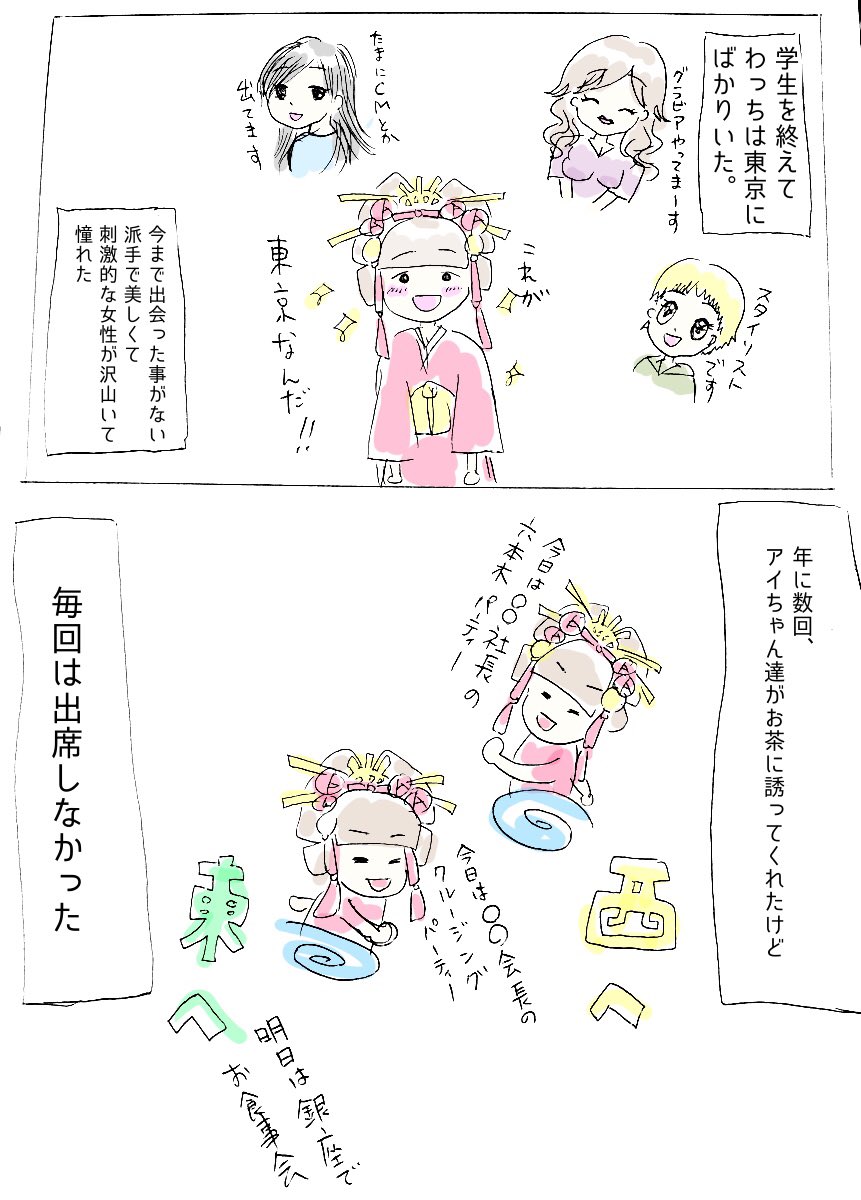 学生を終えて
わっちは東京に
ばかりいた。
グラビアやってまーす
たまにCMとか
出てます
スタイリスト
です
これが
東京なんだ!!
今まで出会った事がない
派手で美しくて
刺激的な女性が沢山いて
憧れた
年に数回、
アイちゃん達がお茶に誘ってくれたけど
今日は〇〇社長の
六本木パーティー
西へ
今日は〇〇会長の
クルージング
パーティー
東へ
明日は銀座で
お食事会
毎回は出席しなかった